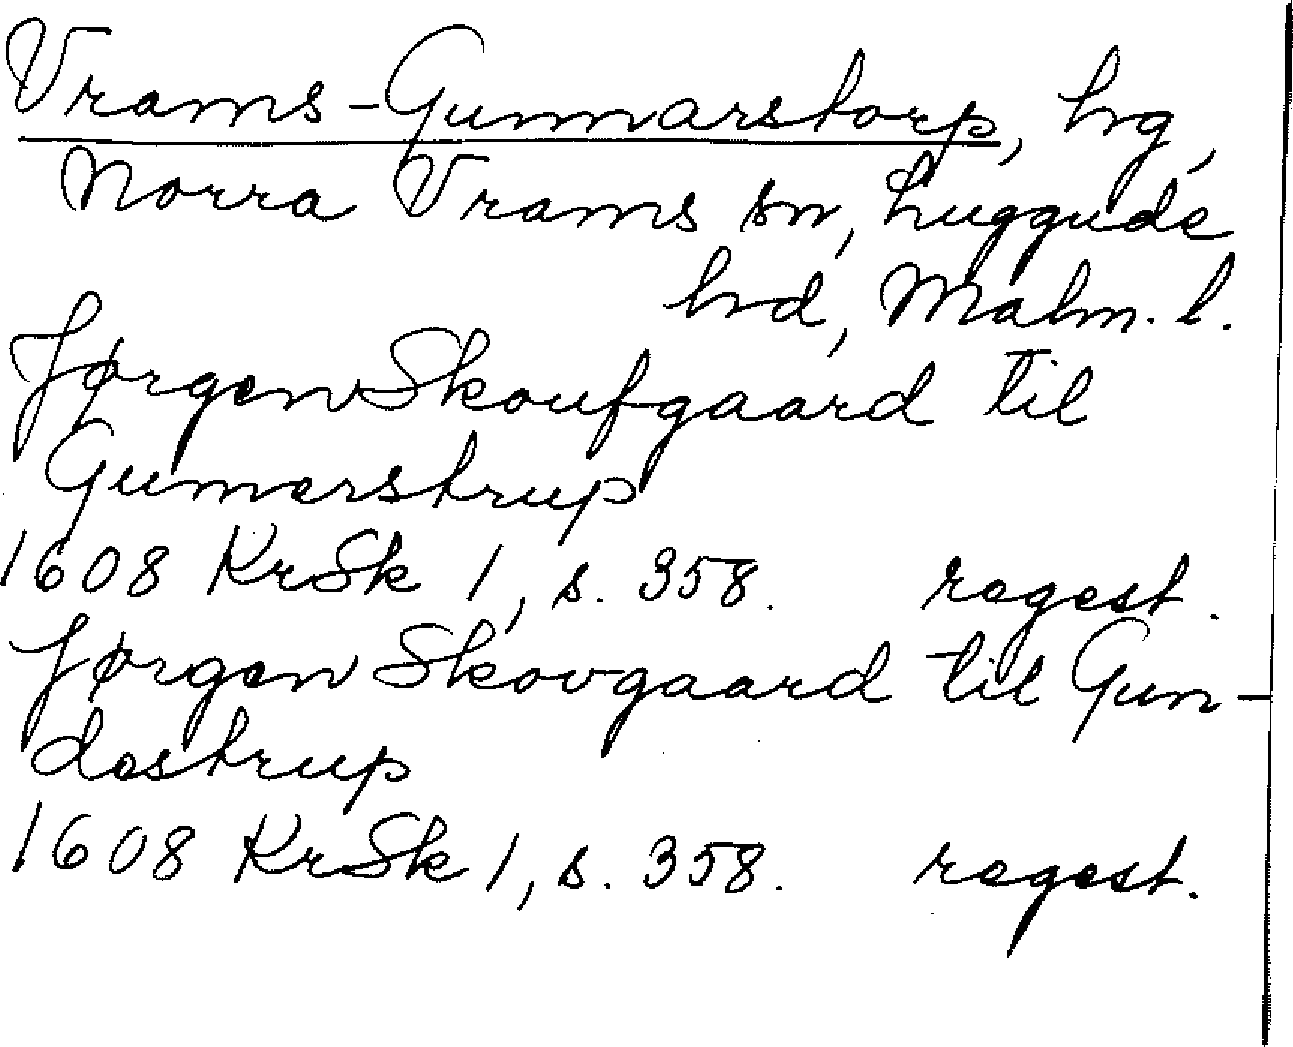 Vrams-Gunnarstorp, hg,
Norra Vrams sn, Luggude
hd, Malm. l.
Jørgen Skoufgaard til
Gumerstrup
1608 KrSk 1, s. 358. regest.
Jørgen Skovgaard til Gun-
destrup
1608 KrSk 1, s. 358. regest.